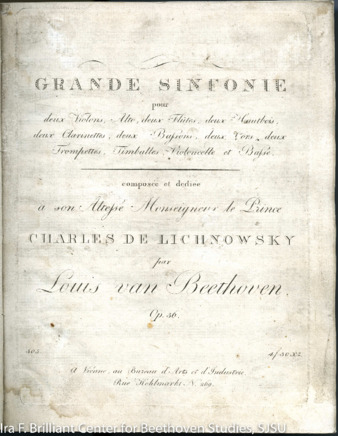 GRANDE SINFONIE
pour
deux Violons, Alto, deux Flûtes, deux Hautbois,
deux Clarinettes, deux Bassons, deux Cors, deux
Trompettes, Timballes, Violoncelle et Basse.
composée et dediée
a son Altesse Monseigneur le Prince
CHARLES DE LICHNOWSKY
par
Louis van Beethoven.
Op. 36.
305.
A Vienne au Bureau d'Arts et d'Industrie
Rue Kohlmarkt N. 269.
Ira F. Brilliant Center for Beethoven Studies, SJSU